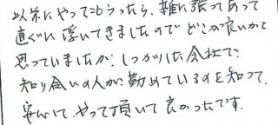 以前にやってもらったら、雑に張ってあって
直ぐに浮いてきましたのでどこが良いかと
思っていましたが、しっかりした会社で、
知り合いの人が勤めているのを知って、
安心して、やって頂いて良かったです。